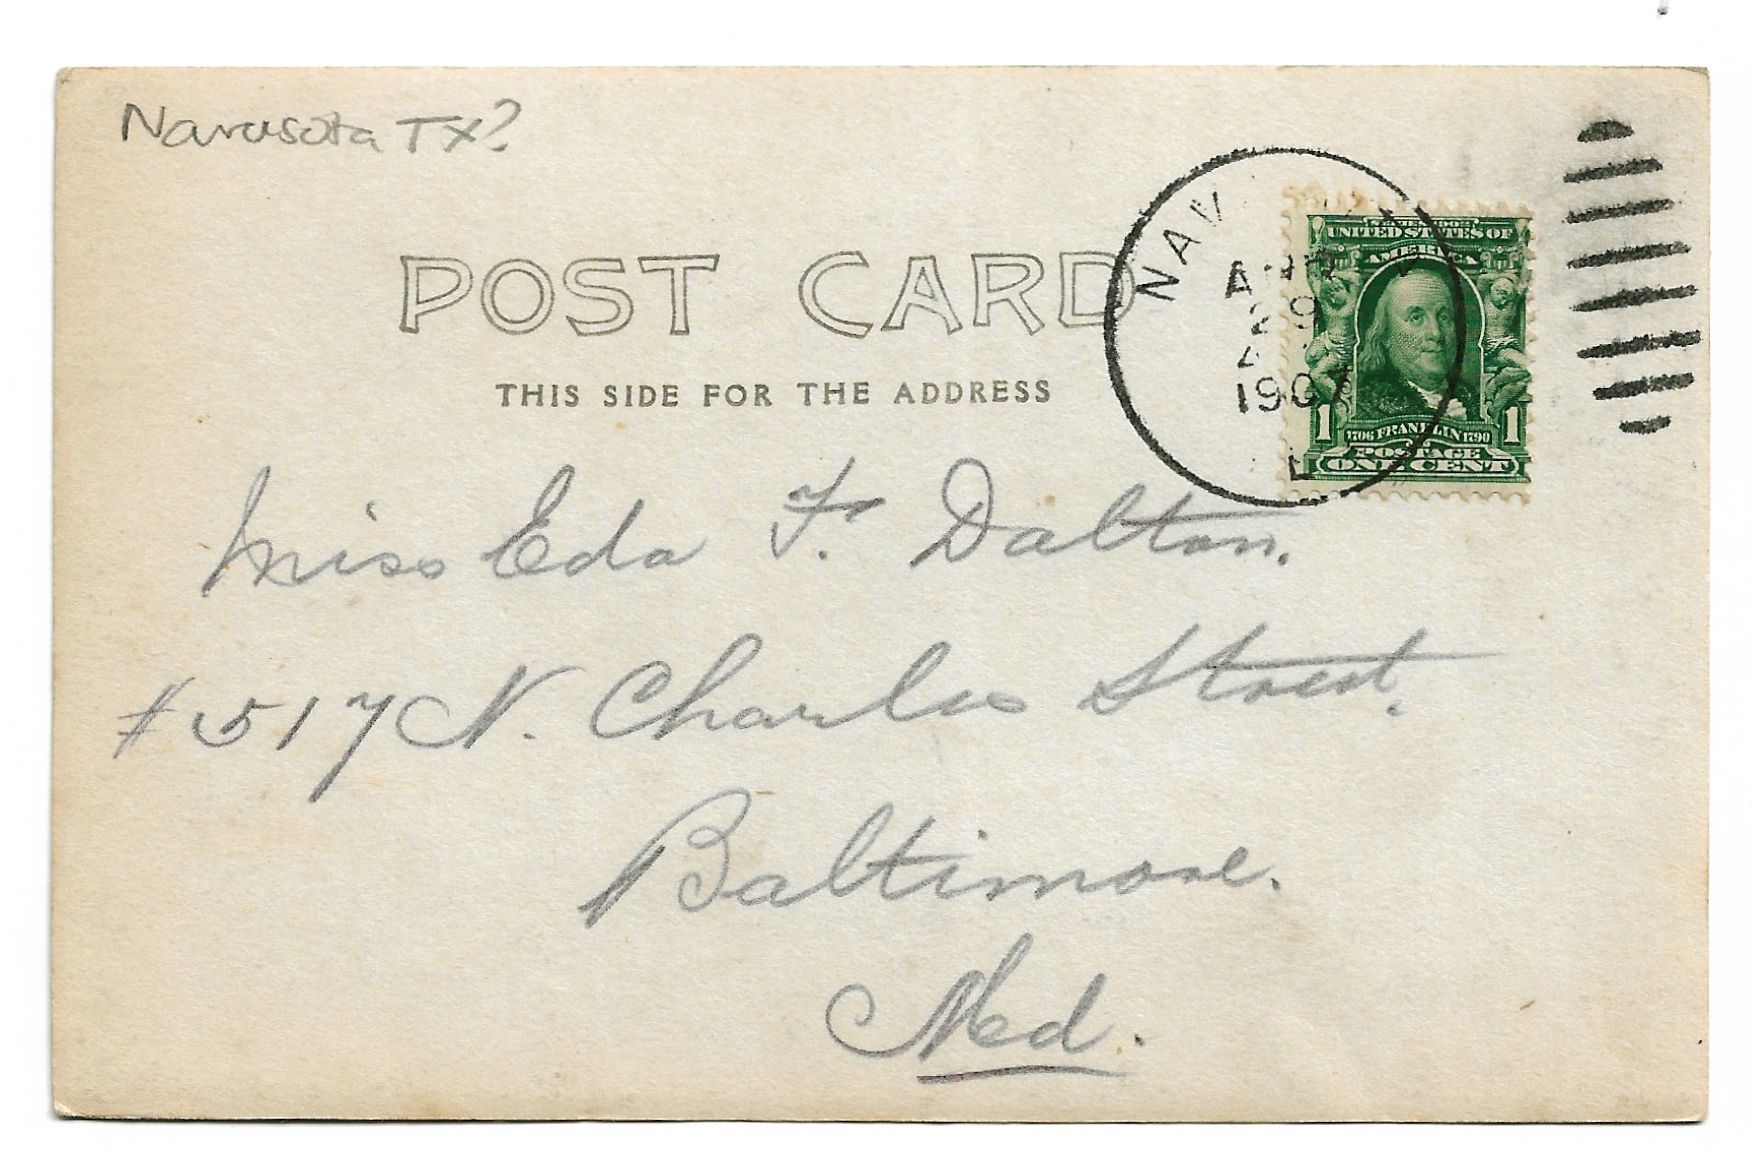 Navasota TX?
POST CARD
THIS SIDE FOR THE ADDRESS
NAV
APR
29
1907
UNITED STATES OF
AMERICA
1 1706 FRANKLIN 1790 1
POSTAGE
ONE CENT
Miss Eda F. Dalton.
#517 N. Charles Street.
Baltimore.
Md.